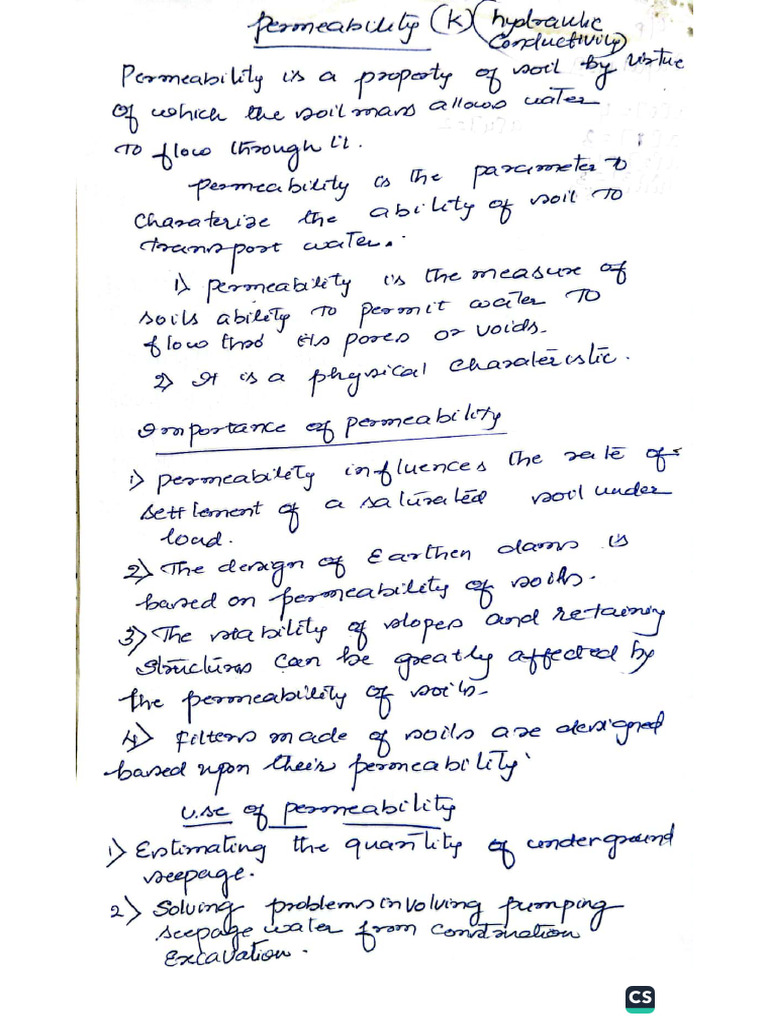 Permeability (K) (hydraulic
Conductivity)
Permeability is a property of soil by virtue
of which the soil mass allows water
to flow through it.
Permeability is the parameter to
charaterise the ability of soil to
transport water.
1) permeability is the measure of
soils ability to permit water to
flow thro its pores or voids.
2) It is a physical charateristic.
Importance of permeability
1) permeability influences the rate of
settlement of a saturated soil under
load.
2) The design of Earthen dams is
based on permeability of soils.
3) The stability of slopes and retaining
structures can be greatly affected by
the permeability of soils.
4) Filters made of soils are designed
based upon their permeability.
use of permeability
1) Estimating the quantity of underground
seepage.
2) Solving problems involving pumping
seepage water from construction
Excavation.
CS